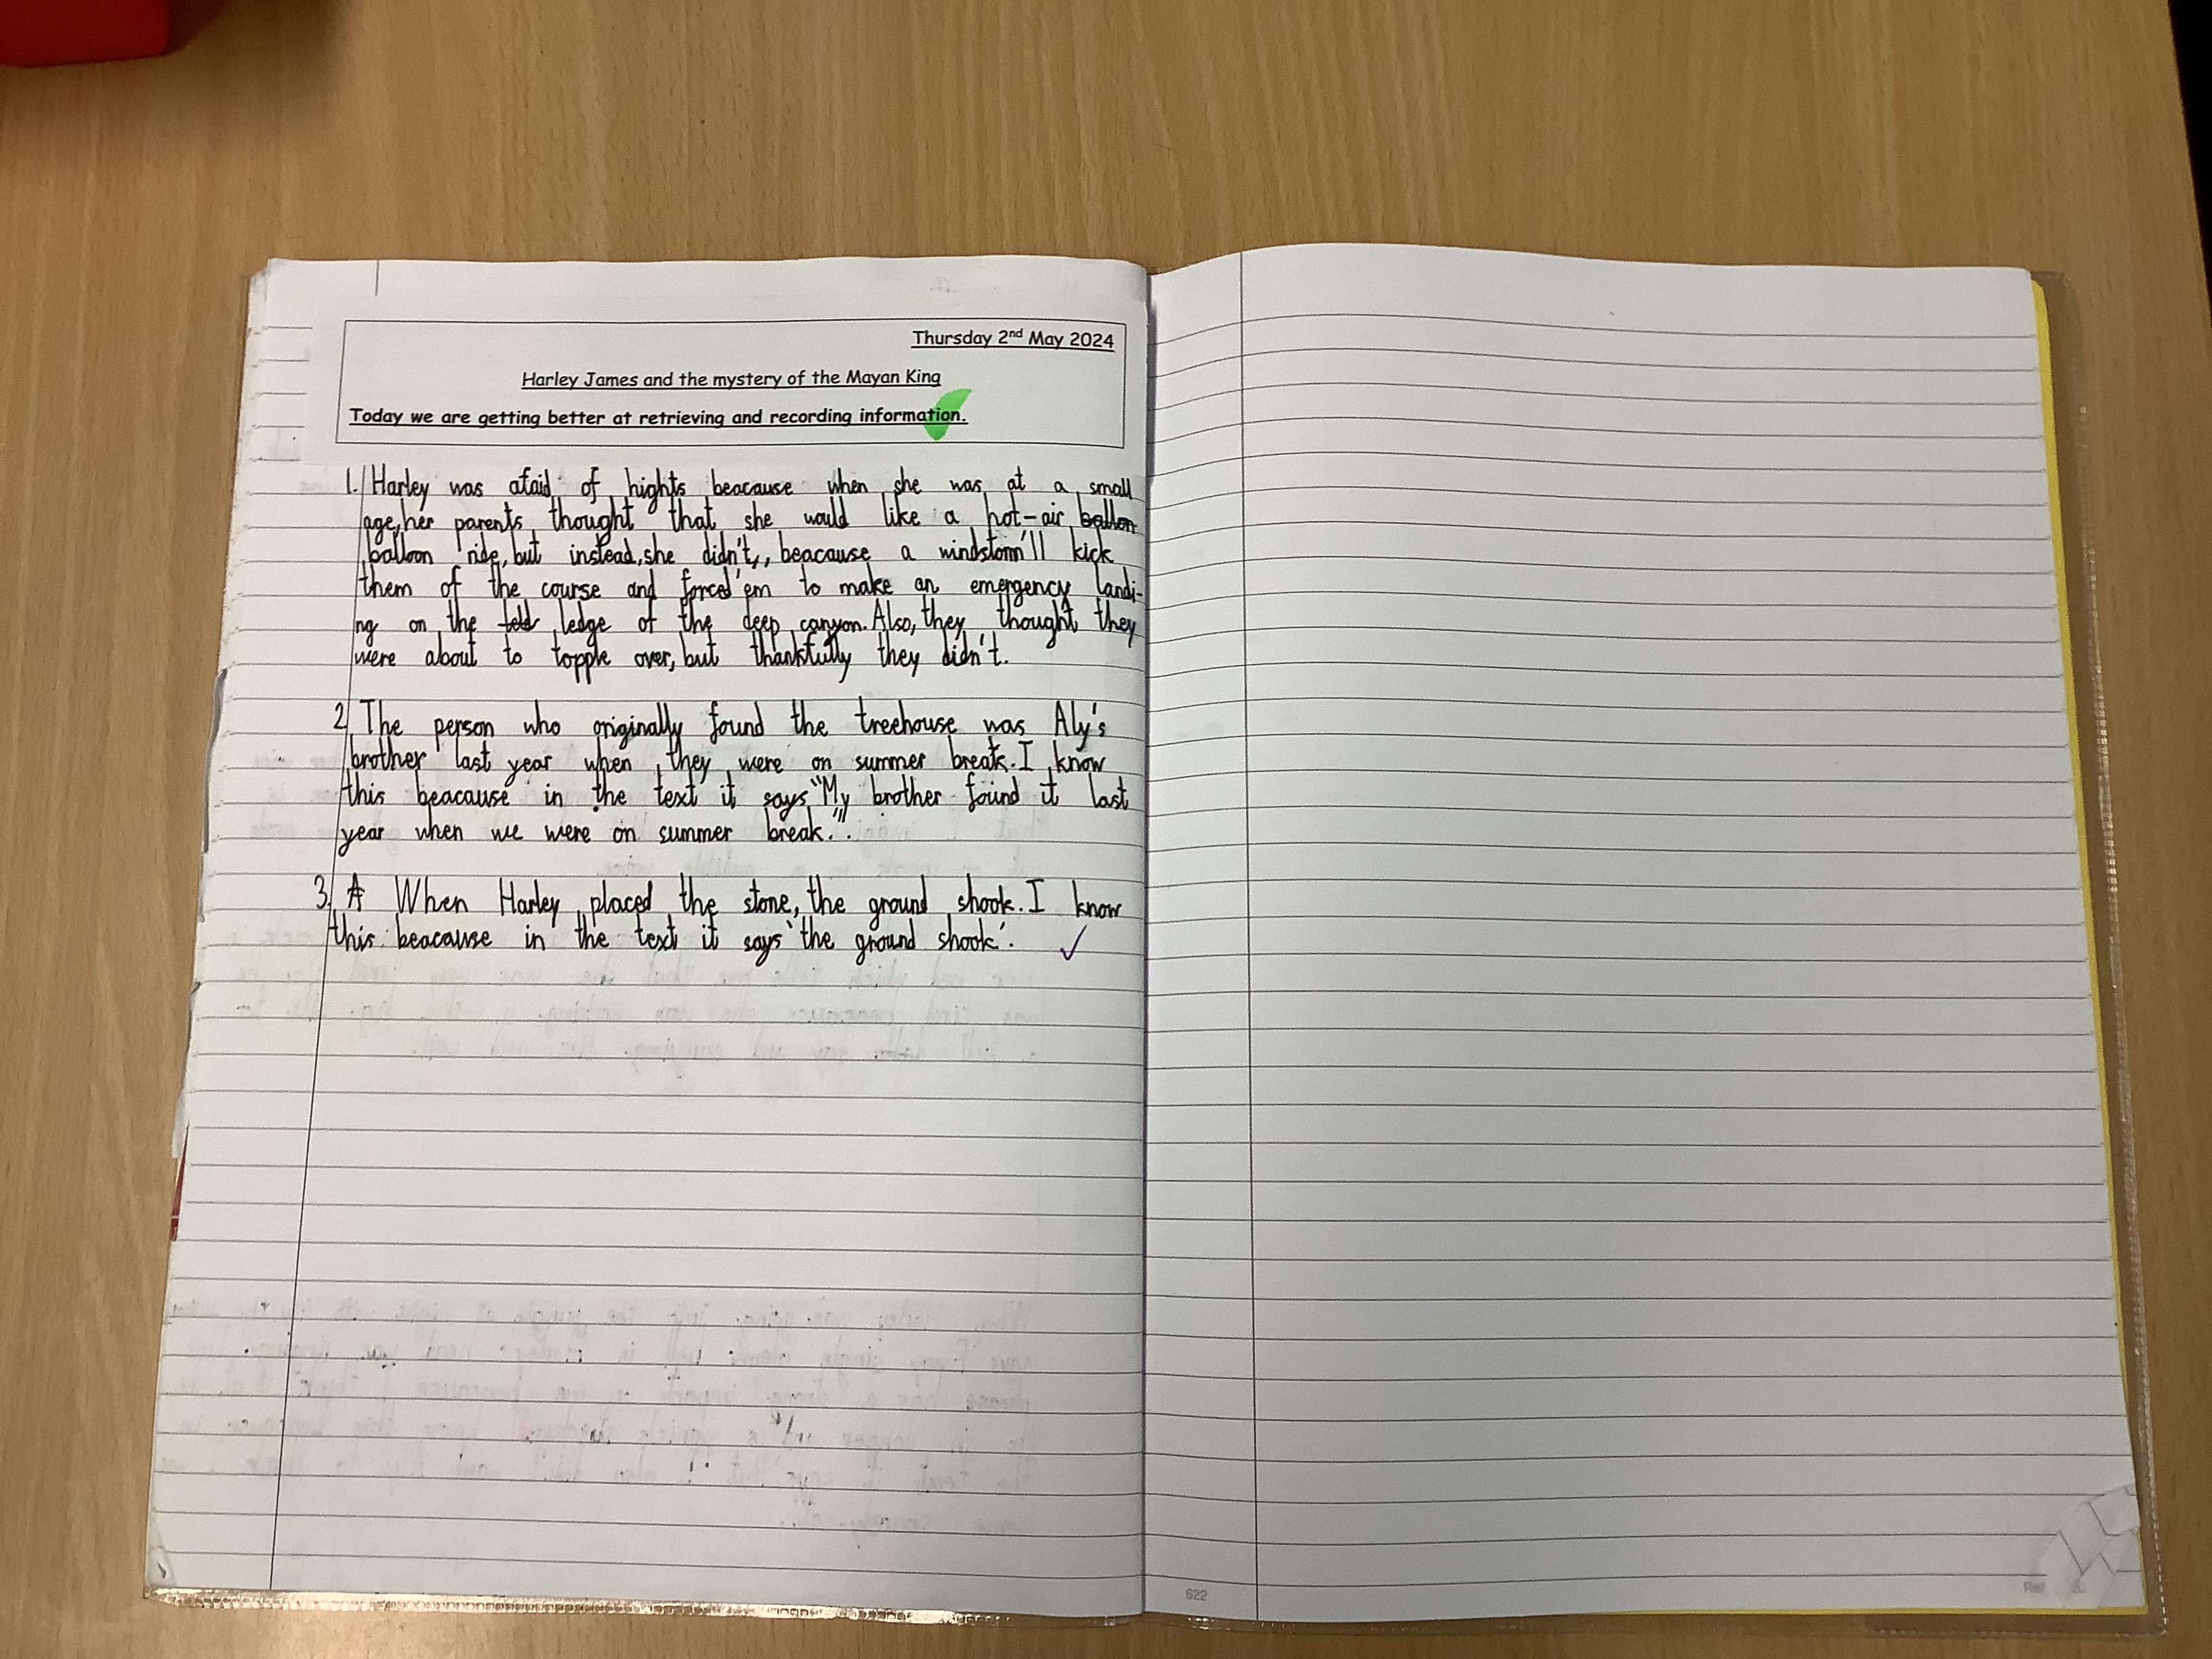 Thursday 2nd May 2024
Harley James and the mystery of the Mayan King
Today we are getting better at retrieving and recording information.
1. Harley was afaid of hights beacause when she was at a small
age, her parents thought that she would like a hot-air ballon
balloon ride, but instead, she didn't, beacause a windstorm'll kick
them of the course and forced 'em to make an emergency landi-
ng on the ledge of the deep canyon. Also, they thought they
were about to topple over, but thankfully they didn't.
2. The person who originally found the treehouse was Aly's
brother last year when they were on summer break. I know
this beacause in the text it says "My brother found it last
year when we were on summer break.".
3. A When Harley placed the stone, the ground shook. I know
this beacause in the text it says 'the ground shook'.
622